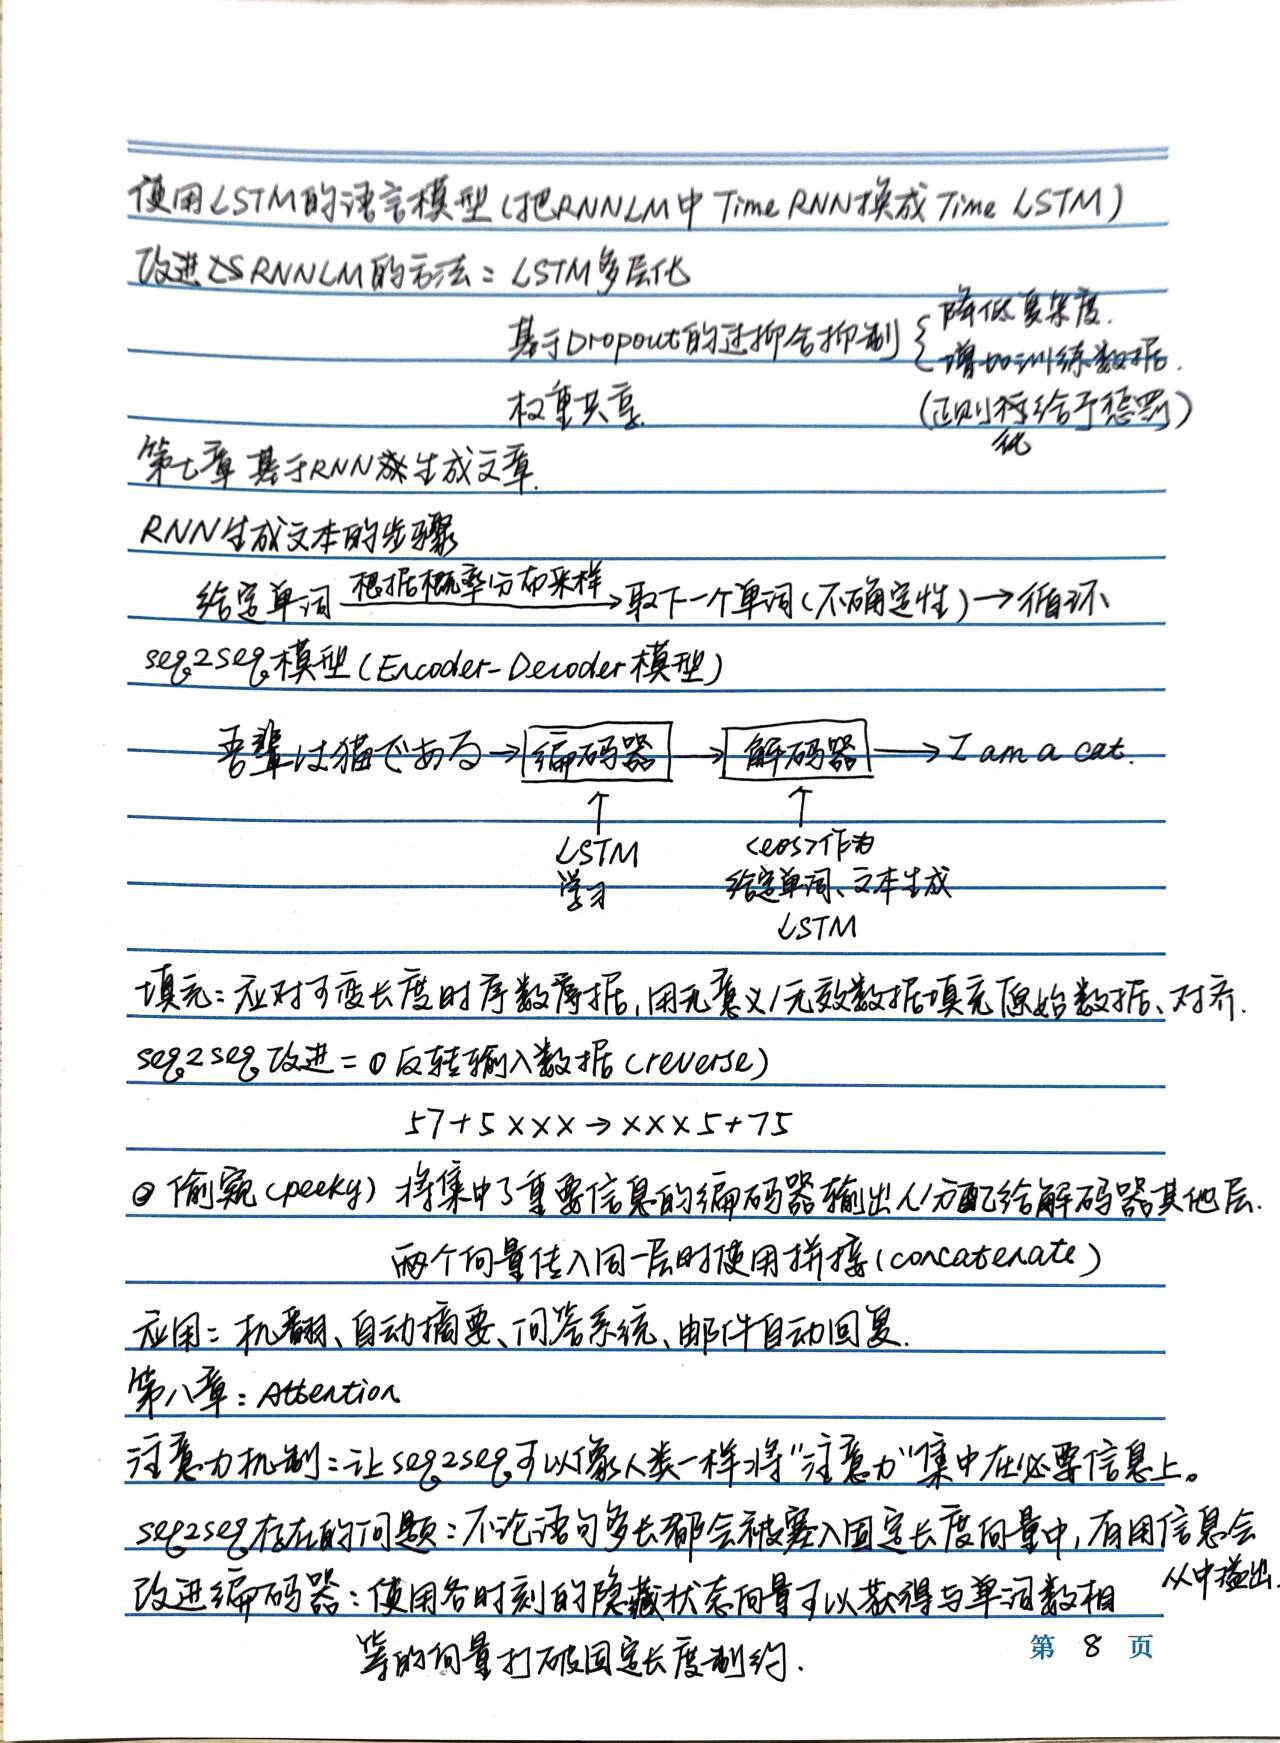 使用LSTM的语言模型(把RNNLM中Time RNN换成Time LSTM)
改进RNNLM的方法：LSTM多层化
基于Dropout的过抑合抑制{降低复杂度.
增加训练数据.
权重共享. (正则化给予惩罚)
第七章 基于RNN生成文章.
RNN生成文本的步骤
给定单词 根据概率分布采样→取下一个单词(不确定性)→循环
seq2seq模型(Encoder-Decoder模型)
吾輩は猫である→编码器→解码器→I am a cat.
↑ ↑
LSTM <eos>作为
学习 给定单词、文本生成
LSTM
填充：应对可变长度时序数据,用无意义/无效数据填充原始数据、对齐.
seq2seq改进：①反转输入数据(reverse)
57+5×××→×××5+75
②偷窥(peeky) 将集中了重要信息的编码器输出h分配给解码器其他层.
两个向量传入同一层时使用拼接(concatenate)
应用：机翻、自动摘要、问答系统、邮件自动回复.
第八章：Attention
注意力机制：让seq2seq可以像人类一样将“注意力”集中在必要信息上。
seq2seq存在的问题：不论语句多长都会被塞入固定长度向量中,有用信息会
从中溢出.
改进编码器：使用各时刻的隐藏状态向量可以获得与单词数相
等的向量打破固定长度制约.
第 8 页